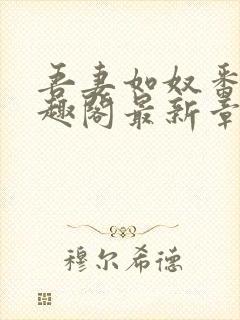 吾妻如奴番
趣阁最新章
穆尔希德